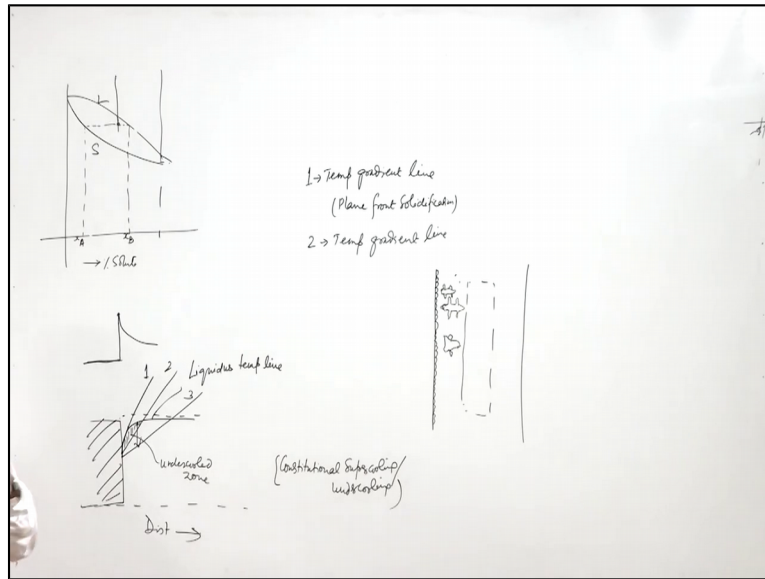 L
S
x_A x_B
→ %. Solute
1 → Temp gradient line
(Plane front Solidification)
2 → Temp gradient line
1 2 Liquidus temp line
3
undercooled
zone
(Constitutional Supercooling/
undercooling)
Dist →